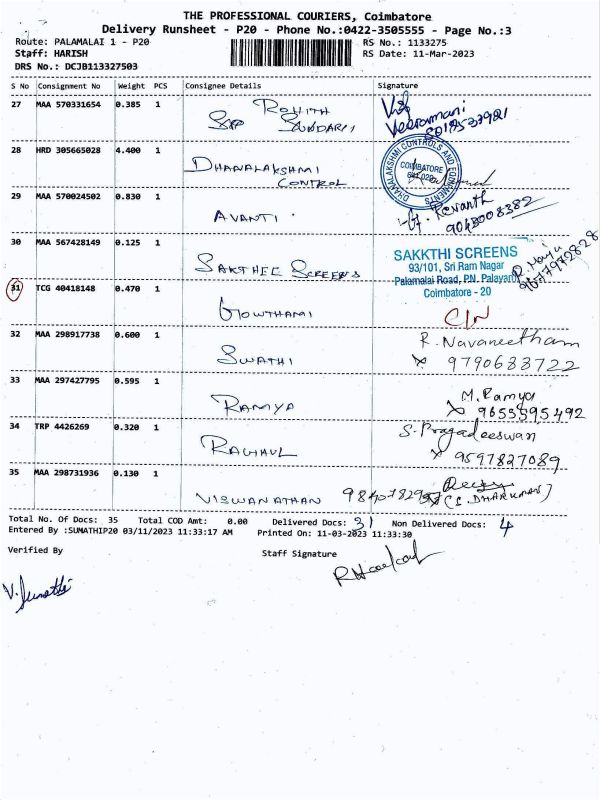 THE PROFESSIONAL COURIERS, Coimbatore
Delivery Runsheet - P20 - Phone No.:0422-3505555 - Page No.:3
Route: PALAMALAI 1 - P20 RS No.: 1133275
Staff: HARISH RS Date: 11-Mar-2023
DRS No.: DCJB113327503
S No Consignment No Weight PCS Consignee Details Signature
27 MAA 570331654 0.385 1 ROHITH
SUNDARI
Veeramani
28 HRD 305665028 4.400 1 DHANALAKSHMI CONTROL
DHANALAKSHMI CONTROLS AND
COIMBATORE
29 MAA 570024502 0.830 1 AVANTI Revanth
9043008382
30 MAA 567428149 0.125 1 SAKTHEE SCREENS
SAKKTHI SCREENS
93/101, Sri Ram Nagar
Palamalai Road, P.N. Palayam
Coimbatore - 20
31 TCG 40418148 0.470 1 GOWTHAMI C/N
32 MAA 298917738 0.600 1 SWATHI R. Navaneetham
9790688722
33 MAA 297427795 0.595 1 RAMYA M. Ramya
9655595492
34 TRP 4426269 0.320 1 RAGHUL S. Pragadeeswan
9597827089
35 MAA 298731936 0.130 1 VISWANATHAN
Total No. Of Docs: 35 Total COD Amt: 0.00 Delivered Docs: 31 Non Delivered Docs: 4
Entered By :SUMATHIP20 03/11/2023 11:33:17 AM Printed On: 11-03-2023 11:33:30
Verified By Staff Signature
V. Sumathi